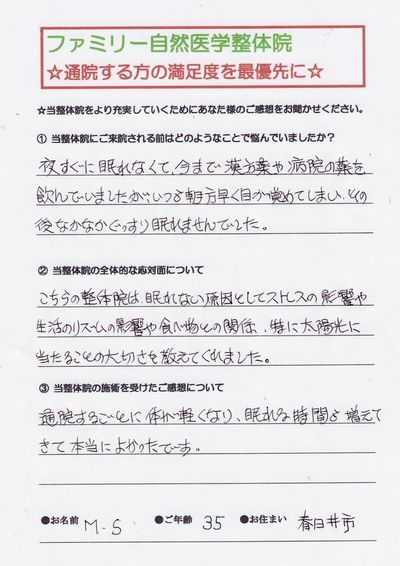 ファミリー自然医学整体院
☆通院する方の満足度を最優先に☆
☆当整体院をより充実していくためにあなた様のご感想をお聞かせください。
① 当整体院にご来院される前はどのようなことで悩んでいましたか？
夜すぐに眠れなくて、今まで漢方薬や病院の薬を
飲んでいましたが、いつも朝方早く目が覚めてしまい、その
後なかなかぐっすり眠れませんでした。
② 当整体院の全体的な応対面について
こちらの整体院は、眠れない原因としてストレスの影響や
生活のリズムの影響や食べ物との関係、特に太陽光に
当たることの大切さを教えてくれました。
③ 当整体院の施術を受けたご感想について
通院するごとに体が軽くなり、眠れる時間も増えて
きて本当によかったです。
●お名前 M-S ●ご年齢 35 ●お住まい 春日井市